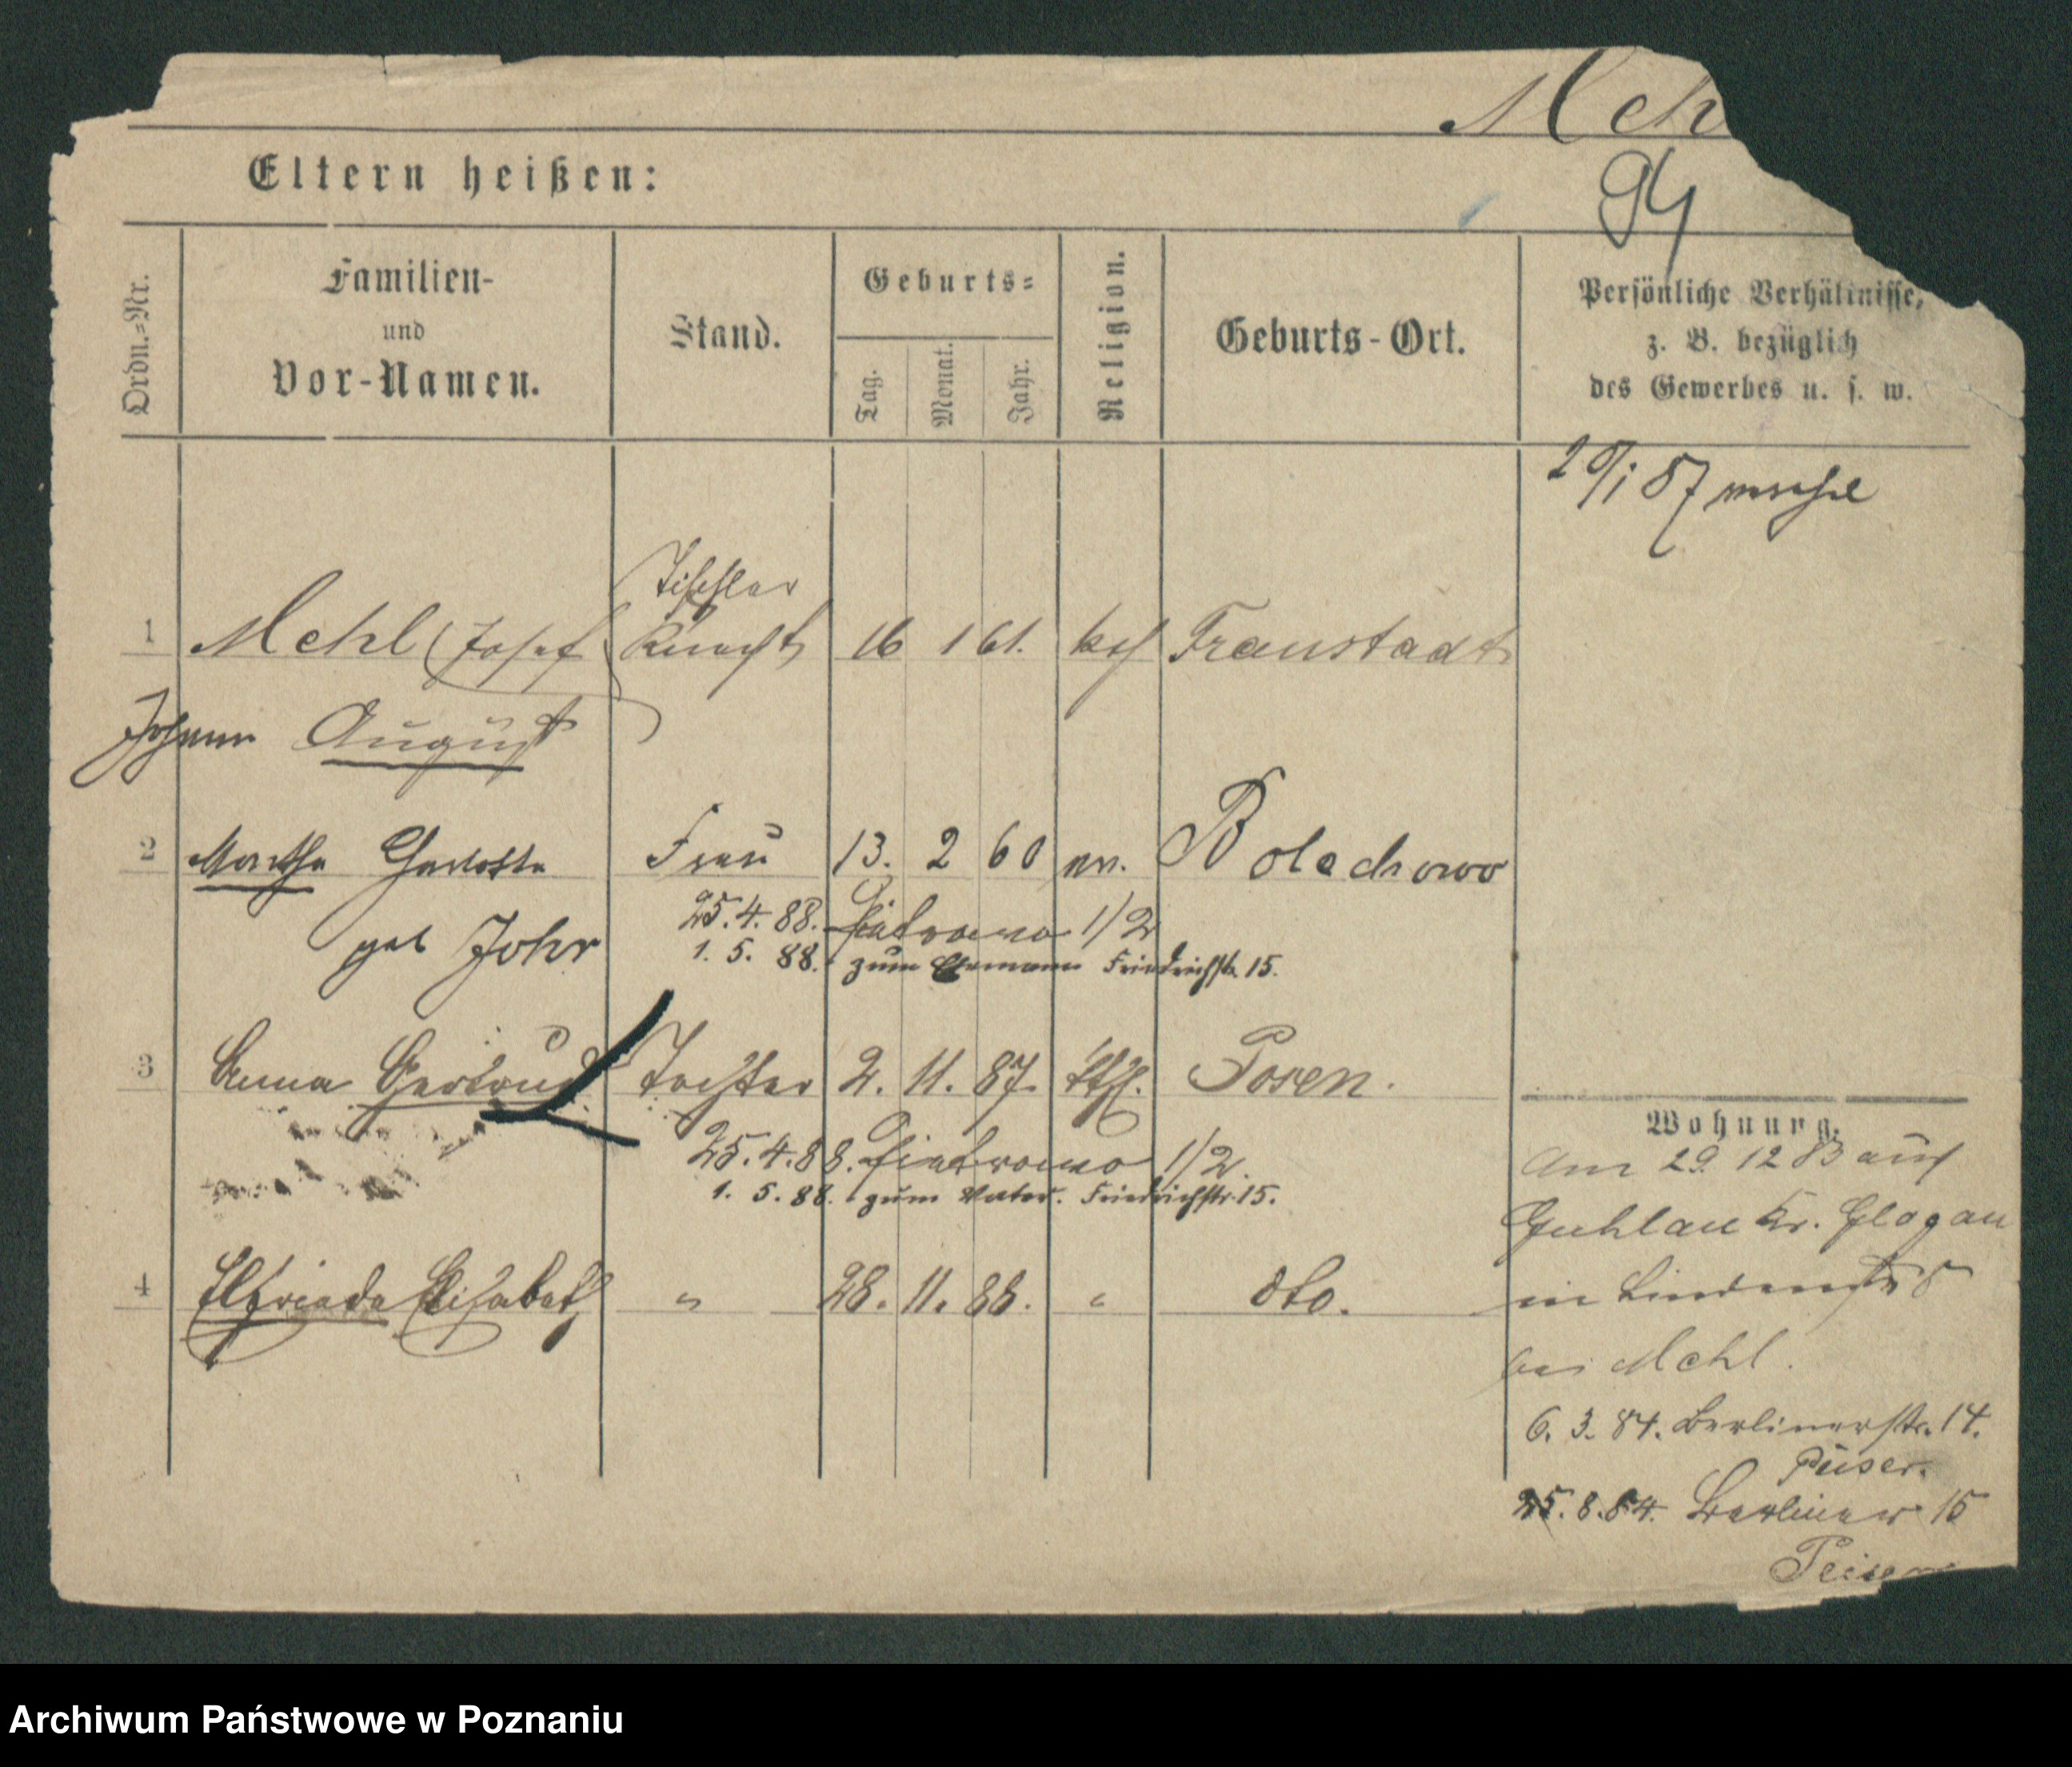 Meh
94
Eltern heißen:
Ordn.-Nr.
Familien-
und
Vor-Namen.
Stand.
Geburts-
Tag.
Monat.
Jahr.
Religion.
Geburts-Ort.
Persönliche Verhältnisse,
z. B. bezüglich
des Gewerbes u. s. w.
87
Tischler
1 Mehl (Josef Knecht 16 1 61. kth Fraustadt
Johann August
2 Martha Charlotte Frau 13. 2 60 ev. Bolechowo
geb Johr
25.4.88. Piotrowo 1/2
1. 5. 88. zum Ehemann Friedrichstr. 15.
3 Anna Gertrud Tochter 2. 11. 87. kth. Posen.
25.4.88. Piotrowo 1/2.
1. 5. 88. zum Vater. Friedrichstr. 15.
4 Elfriede Elisabeth " 28. 11. 88. " dto.
Wohnung.
Am 29. 12 83 aus
Guhlau Kr. Glogau
in Lindenstr 5
bei Mehl.
6. 3. 84. Berlinerstr. 14.
Püser.
25. 8. 84. Berliner 15